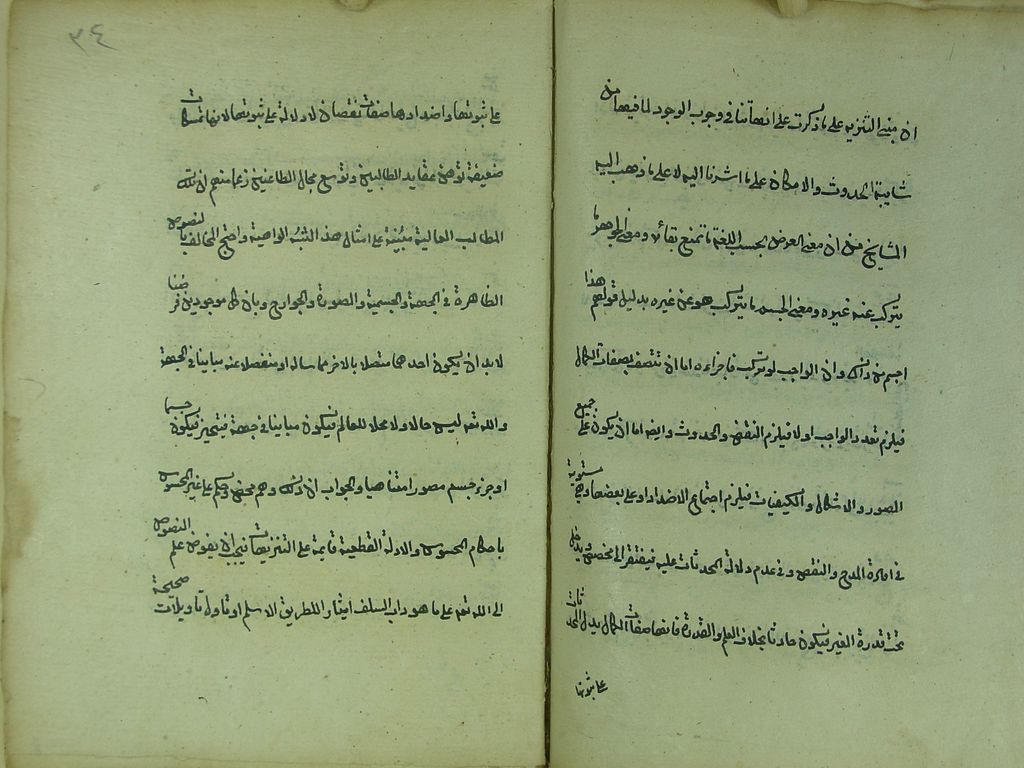 ان مبنى التنزيه على ما ذكرت على انها تنافي وجوب الوجود لما فيها من
شايبة الحدوث والامكان على ما اشرنا اليه لا على ما ذهب اليه
المشايخ من ان معنى العرض بحسب اللغة ما يمتنع بقاؤه ومعنى الجوهر ما
يتركب عنه غيره ومعنى الجسم ما يتركب هو عن غيره بدليل قولهم هذا
اجسم من ذاك وان الواجب لو تركب فاجزاءه اما ان تتصف بصفات الكمال
فيلزم تعدد الواجب اولا فيلزم النقص والحدوث وايضا اما ان يكون على جميع
الصور والاشكال والكيفيات فيلزم اجتماع الاضداد او على بعضها وهي مستوية
في افادة المدح والنقص وفي عدم دلالة المحدثات عليه فيفتقر الى مخصص ويدخل
تحت قدرة الغير فيكون حادثا بخلاف العلم والقدرة فانها صفات الكمال يدل المحدثات
على ثبوتها
٣٤
على ثبوتها واضدادها صفات نقصان لا دلالة على ثبوتها لانها تمسكات
ضعيفة توهن عقايد الطالبين وتوسع مجال الطاعنين زعما منهم ان تلك
المطالب العالية مبنية على امثال هذه الشبه الواهية واحتج المخالف بالنصوص
الظاهرة في الجهة والجسمية والصورة والجوارح وبان كل موجودين فرضا
لا بد ان يكون احدهما متصلا بالاخر مماسا له او منفصلا عنه مباينا في الجهة
والله تعه ليس حالا ولا محلا للعالم فيكون مباينا في جهة فيتحيز فيكون جسما
او جزء جسم مصورا متناهيا والجواب ان ذلك وهم محض وحكم على غير المحسوس
باحكام المحسوس والادلة القطعية قايمة على التنزيهات فيجب ان يفوض علم النصوص
الى الله تعه على ما هو داب السلف ايثارا للطريق الاسلم او تاول تاويلات صحيحة